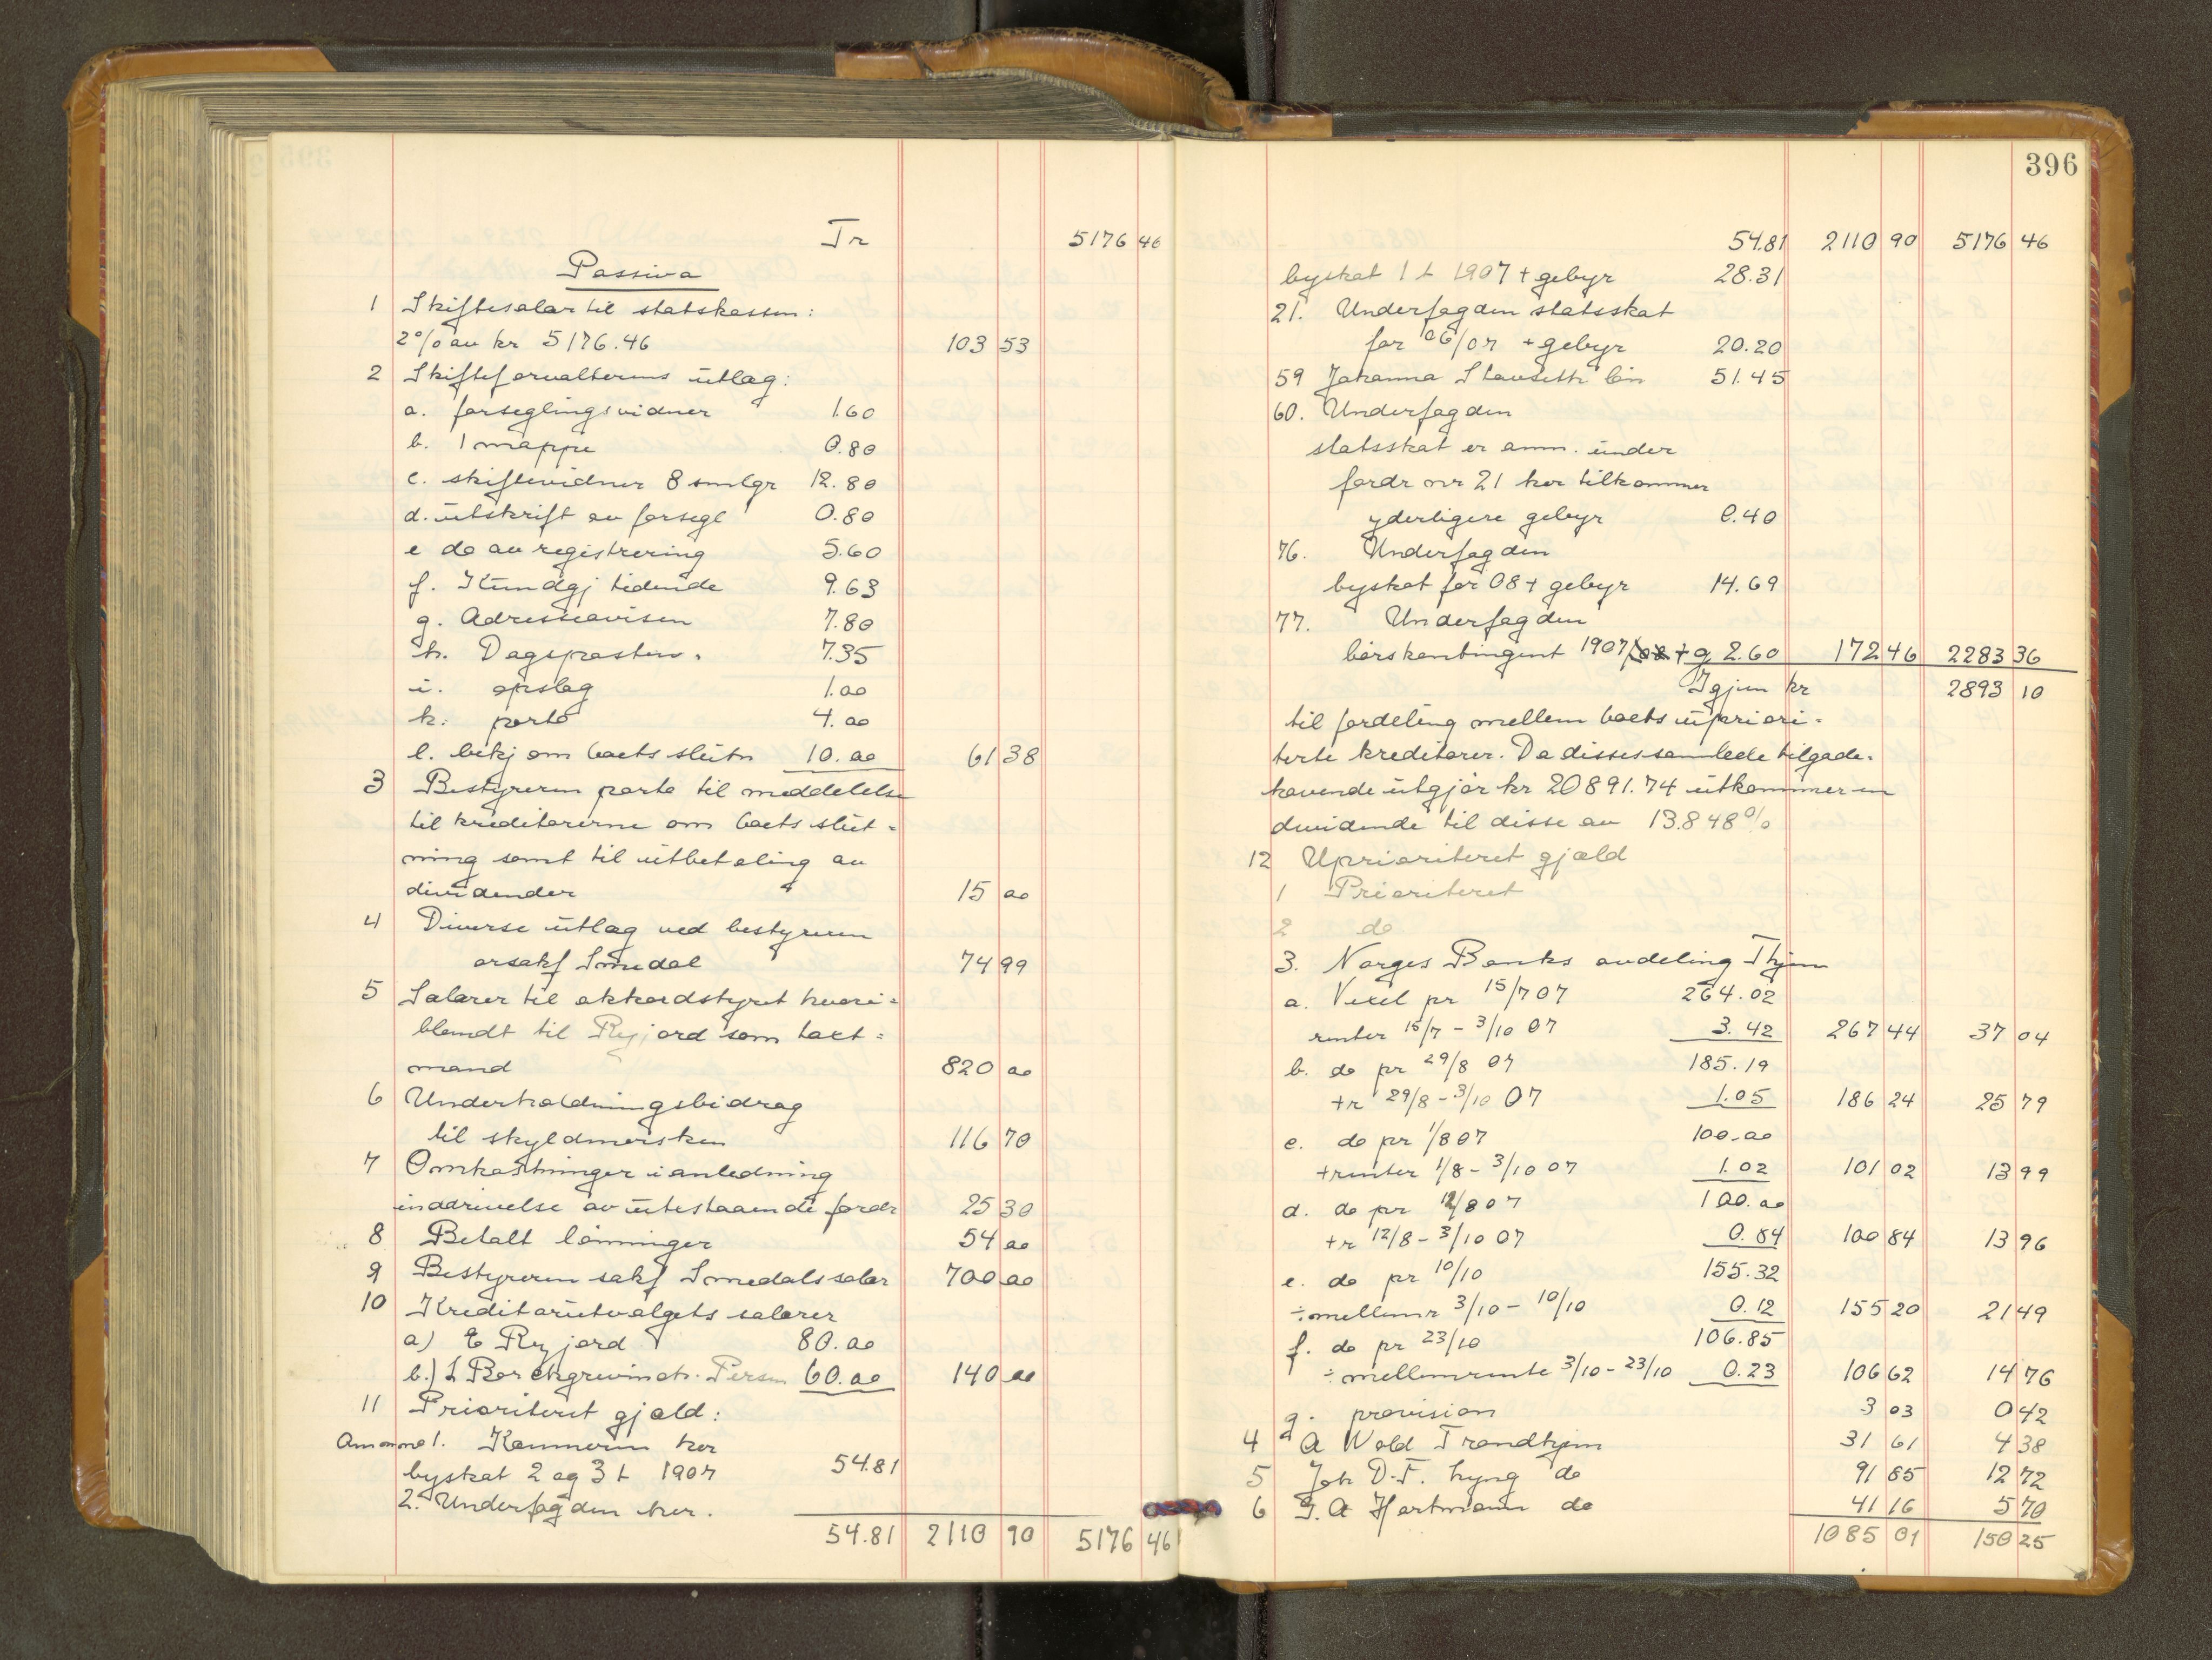 Tr 5176 46
Passiva
1 Skiftesalær til statskassen:
2% av kr 5176.46 103 53
2 Skifteforvalterens utlæg:
a. forseglingsvidner 1.60
b. 1 mappe 0.80
c. skiftevidner 8 smlgr 12.80
d. utskrift av forsegl 0.80
e do av registrering 5.60
f. Kundgj tidende 9.63
g. Adresseavisen 7.80
h. Dagsposten. 7.35
i. opslag 1.00
k. porto 4.00
l. bekj om boets slutn 10.00 61 38
3 Bestyreren porto til meddelelse
til kreditorerne om boets slut=
ning samt til utbetaling av
dividender 15 00
4 Diverse utlæg ved bestyreren
orsakf Smedal 74 99
5 Salærer til akkordstyret hvori=
blandt til Ryjord som takt=
mand 820 00
6 Underholdningsbidrag
til skyldnersken 116 70
7 Omkostninger i anledning
inddrivelse av utestaaende fordr 25 30
8 Betalt lønninger 54 00
9 Bestyreren sakf Smedals salær 700 00
10 Kreditorutvalgets salærer
a) E Ryjord 80.00
b.) L Borchgrevinch. Persen 60.00 140 00
11 Prioritert gjæld:
Anm no 1. Kemneren her
byskat 2 og 3 t 1907 54.81
2. Underfogden her.
54.81 2110 90 5176 46
396
54.81 2110 90 5176 46
byskat 1 t 1907 + gebyr 28.31
21. Underfogden statsskat
for 06/07 + gebyr 20.20
59 Johanna Stavseth løn 51.45
60. Underfogden
statsskat er anm. under
fordr nr 21 her tilkommer
yderligere gebyr 0.40
76. Underfogden
byskat for 08 + gebyr 14.69
77. Underfogden
børskontingent 1907/08 + g 2.60 172 46 2283 36
Igjen kr 2893 10
til fordeling mellem boets upriori=
terte kreditorer. Da disses samlede tilgode=
havende utgjør kr 20891.74 utkommer en
dividende til disse av 13.848%
12 Uprioriteret gjæld
1 Prioriteret
2 do
3. Norges Banks avdeling Thjem
a. Vexel pr 15/7 07 264.02
renter 15/7 - 3/10 07 3.42 267 44 37 04
b. do pr 29/8 07 185.19
+ r 29/8 - 3/10 07 1.05 186 24 25 79
c. do pr 1/8 07 100.00
+ renter 1/8 - 3/10 07 1.02 101 02 13 99
d. do pr 12/8 07 100.00
+ r 12/8 - 3/10 07 0.84 100 84 13 96
e. do pr 10/10 155.32
÷ mellemr 3/10 - 10/10 0.12 155 20 21 49
f. do pr 23/10 106.85
÷ mellemrente 3/10 - 23/10 0.23 106 62 14 76
g. provision 3 03 0 42
4 A Wold Trondhjem 31 61 4 38
5 Joh D. F. Lyng do 91 85 12 72
6 G. A Hartmann do 41 16 5 70
1085 01 150 25